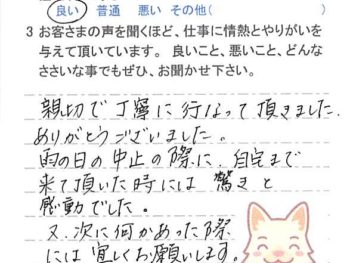 良い 普通 悪い その他( )
3 お客さまの声を聞くほど、仕事に情熱とやりがいを
与えて頂いています。 良いこと、悪いこと、どんな
ささいな事でもぜひ、お聞かせ下さい。
親切で丁寧に行なって頂きました。
ありがとうございました。
雨の日の中止の際に、自宅まで
来て頂いた時には 驚きと
感動でした。
又、次に何かあった際
には宜しくお願いします。